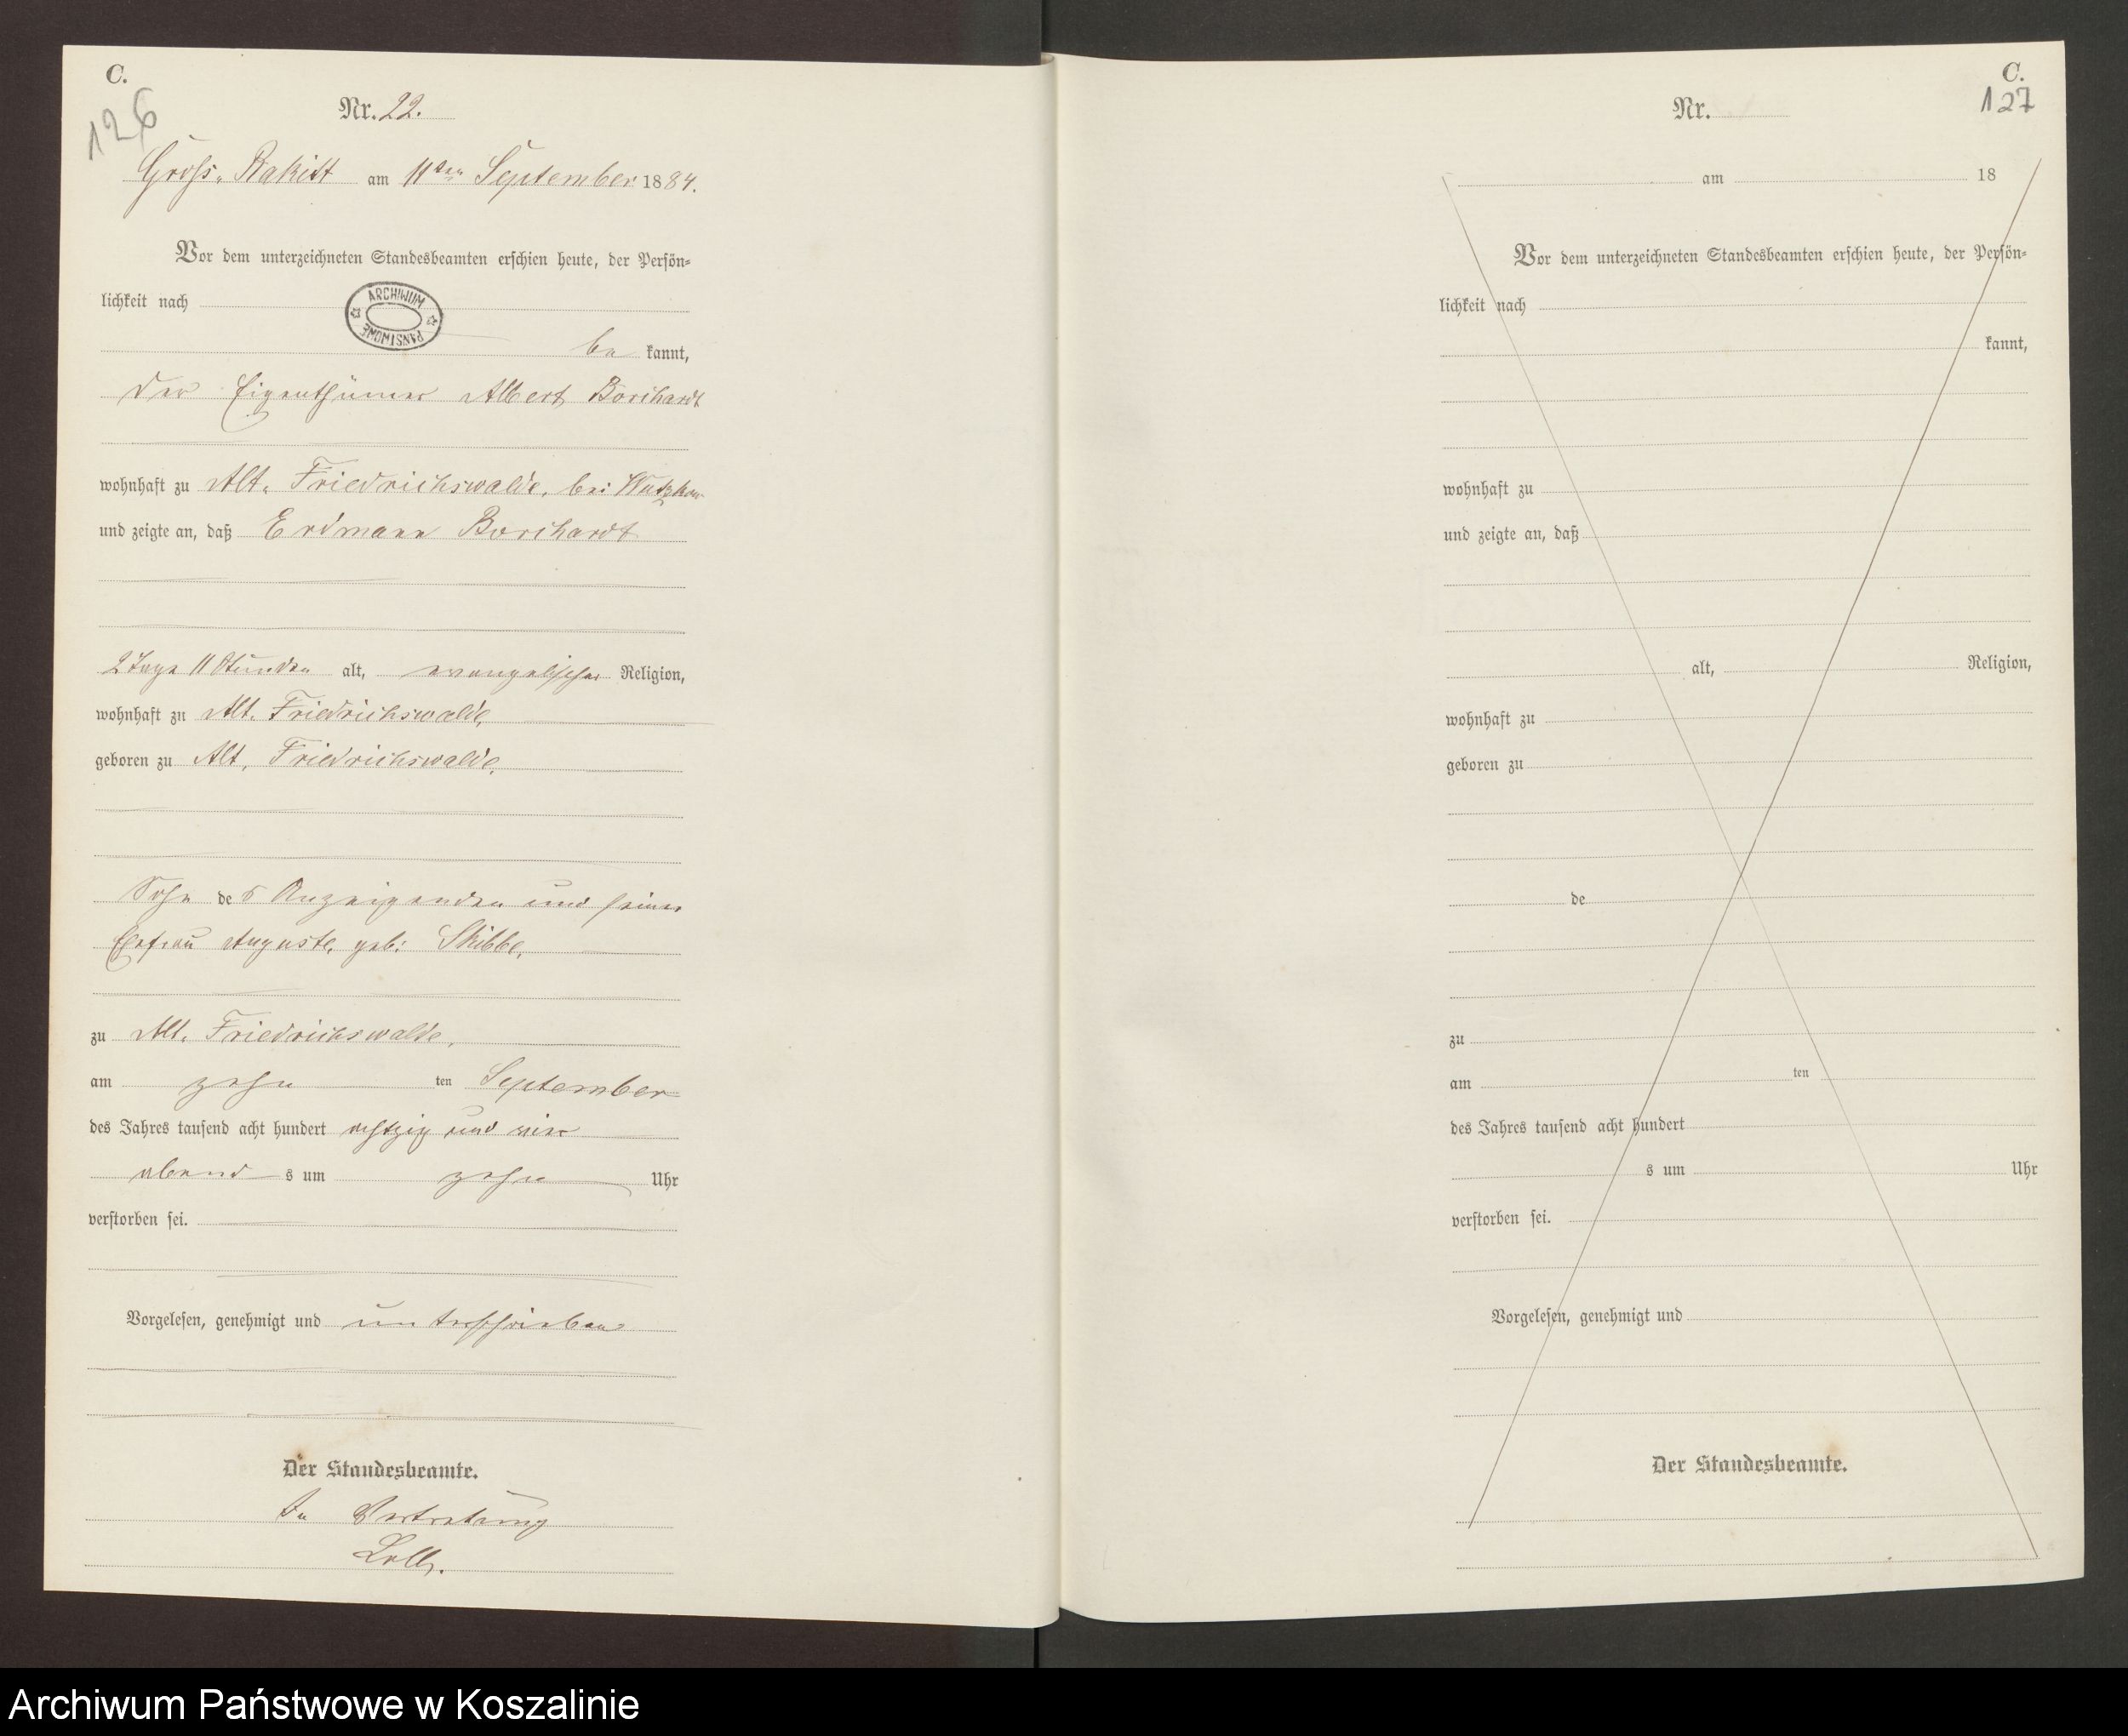 C.
126
Nr. 22.
Gross-Rakitt am 11ten September 1884.
Vor dem unterzeichneten Standesbeamten erschien heute, der Persön-
lichkeit nach
ARCHIWUM
PAŃSTWOWE
be kannt,
der Eigenthümer Albert Borchardt
wohnhaft zu Alt-Friedrichswalde, bei Wutzkow
und zeigte an, daß Erdmann Borchardt
2 Tage 11 Stunden alt, evangelischer Religion,
wohnhaft zu Alt-Friedrichswalde,
geboren zu Alt-Friedrichswalde,
Sohn des Anzeigenden und seiner
Ehefrau Auguste, geb: Skibbe,
zu Alt-Friedrichswalde,
am zehn ten September
des Jahres tausend acht hundert achtzig und vier
abend s um zehn Uhr
verstorben sei.
Vorgelesen, genehmigt und unterschrieben
Der Standesbeamte.
In Vertretung
C.
127
Nr.
am 18
Vor dem unterzeichneten Standesbeamten erschien heute, der Persön-
lichkeit nach
kannt,
wohnhaft zu
und zeigte an, daß
alt, Religion,
wohnhaft zu
geboren zu
de
zu
am ten
des Jahres tausend acht hundert
s um Uhr
verstorben sei.
Vorgelesen, genehmigt und
Der Standesbeamte.
Archiwum Państwowe w Koszalinie